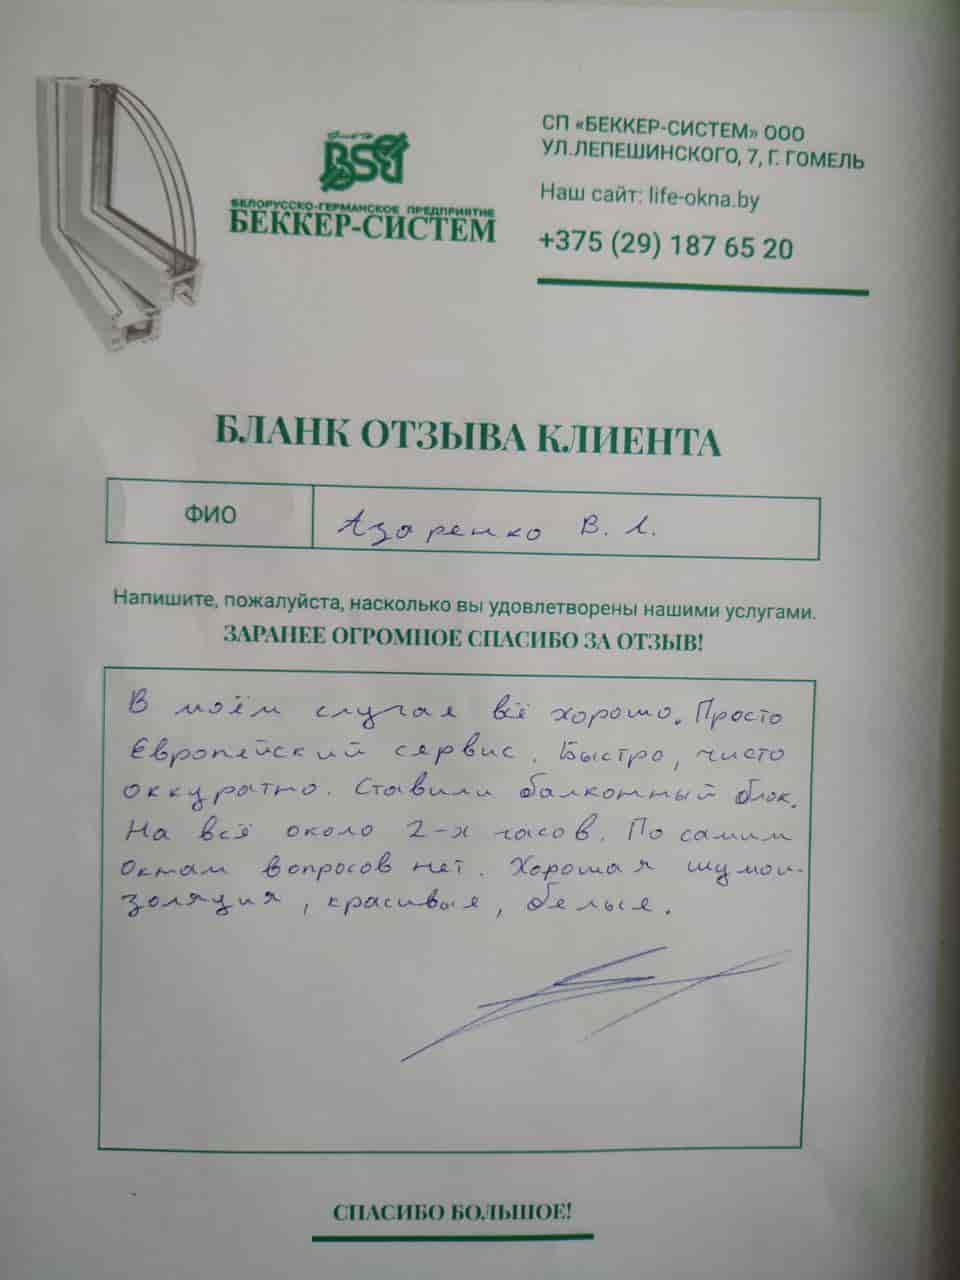 СП «БЕККЕР-СИСТЕМ» ООО
УЛ.ЛЕПЕШИНСКОГО, 7, Г. ГОМЕЛЬ
Наш сайт: life-okna.by
+375 (29) 187 65 20
БЕЛОРУССКО-ГЕРМАНСКОЕ ПРЕДПРИЯТИЕ
БЕККЕР-СИСТЕМ
БЛАНК ОТЗЫВА КЛИЕНТА
ФИО Азаренко В. Л.
Напишите, пожалуйста, насколько вы удовлетворены нашими услугами.
ЗАРАНЕЕ ОГРОМНОЕ СПАСИБО ЗА ОТЗЫВ!
В моём случая всё хорошо. Просто
Европейский сервис. Быстро, чисто
оккуратно. Ставили балконный блок.
На всё около 2-х часов. По самим
окнам вопросов нет. Хорошая шумои-
золяция, красивые, белые.
СПАСИБО БОЛЬШОЕ!